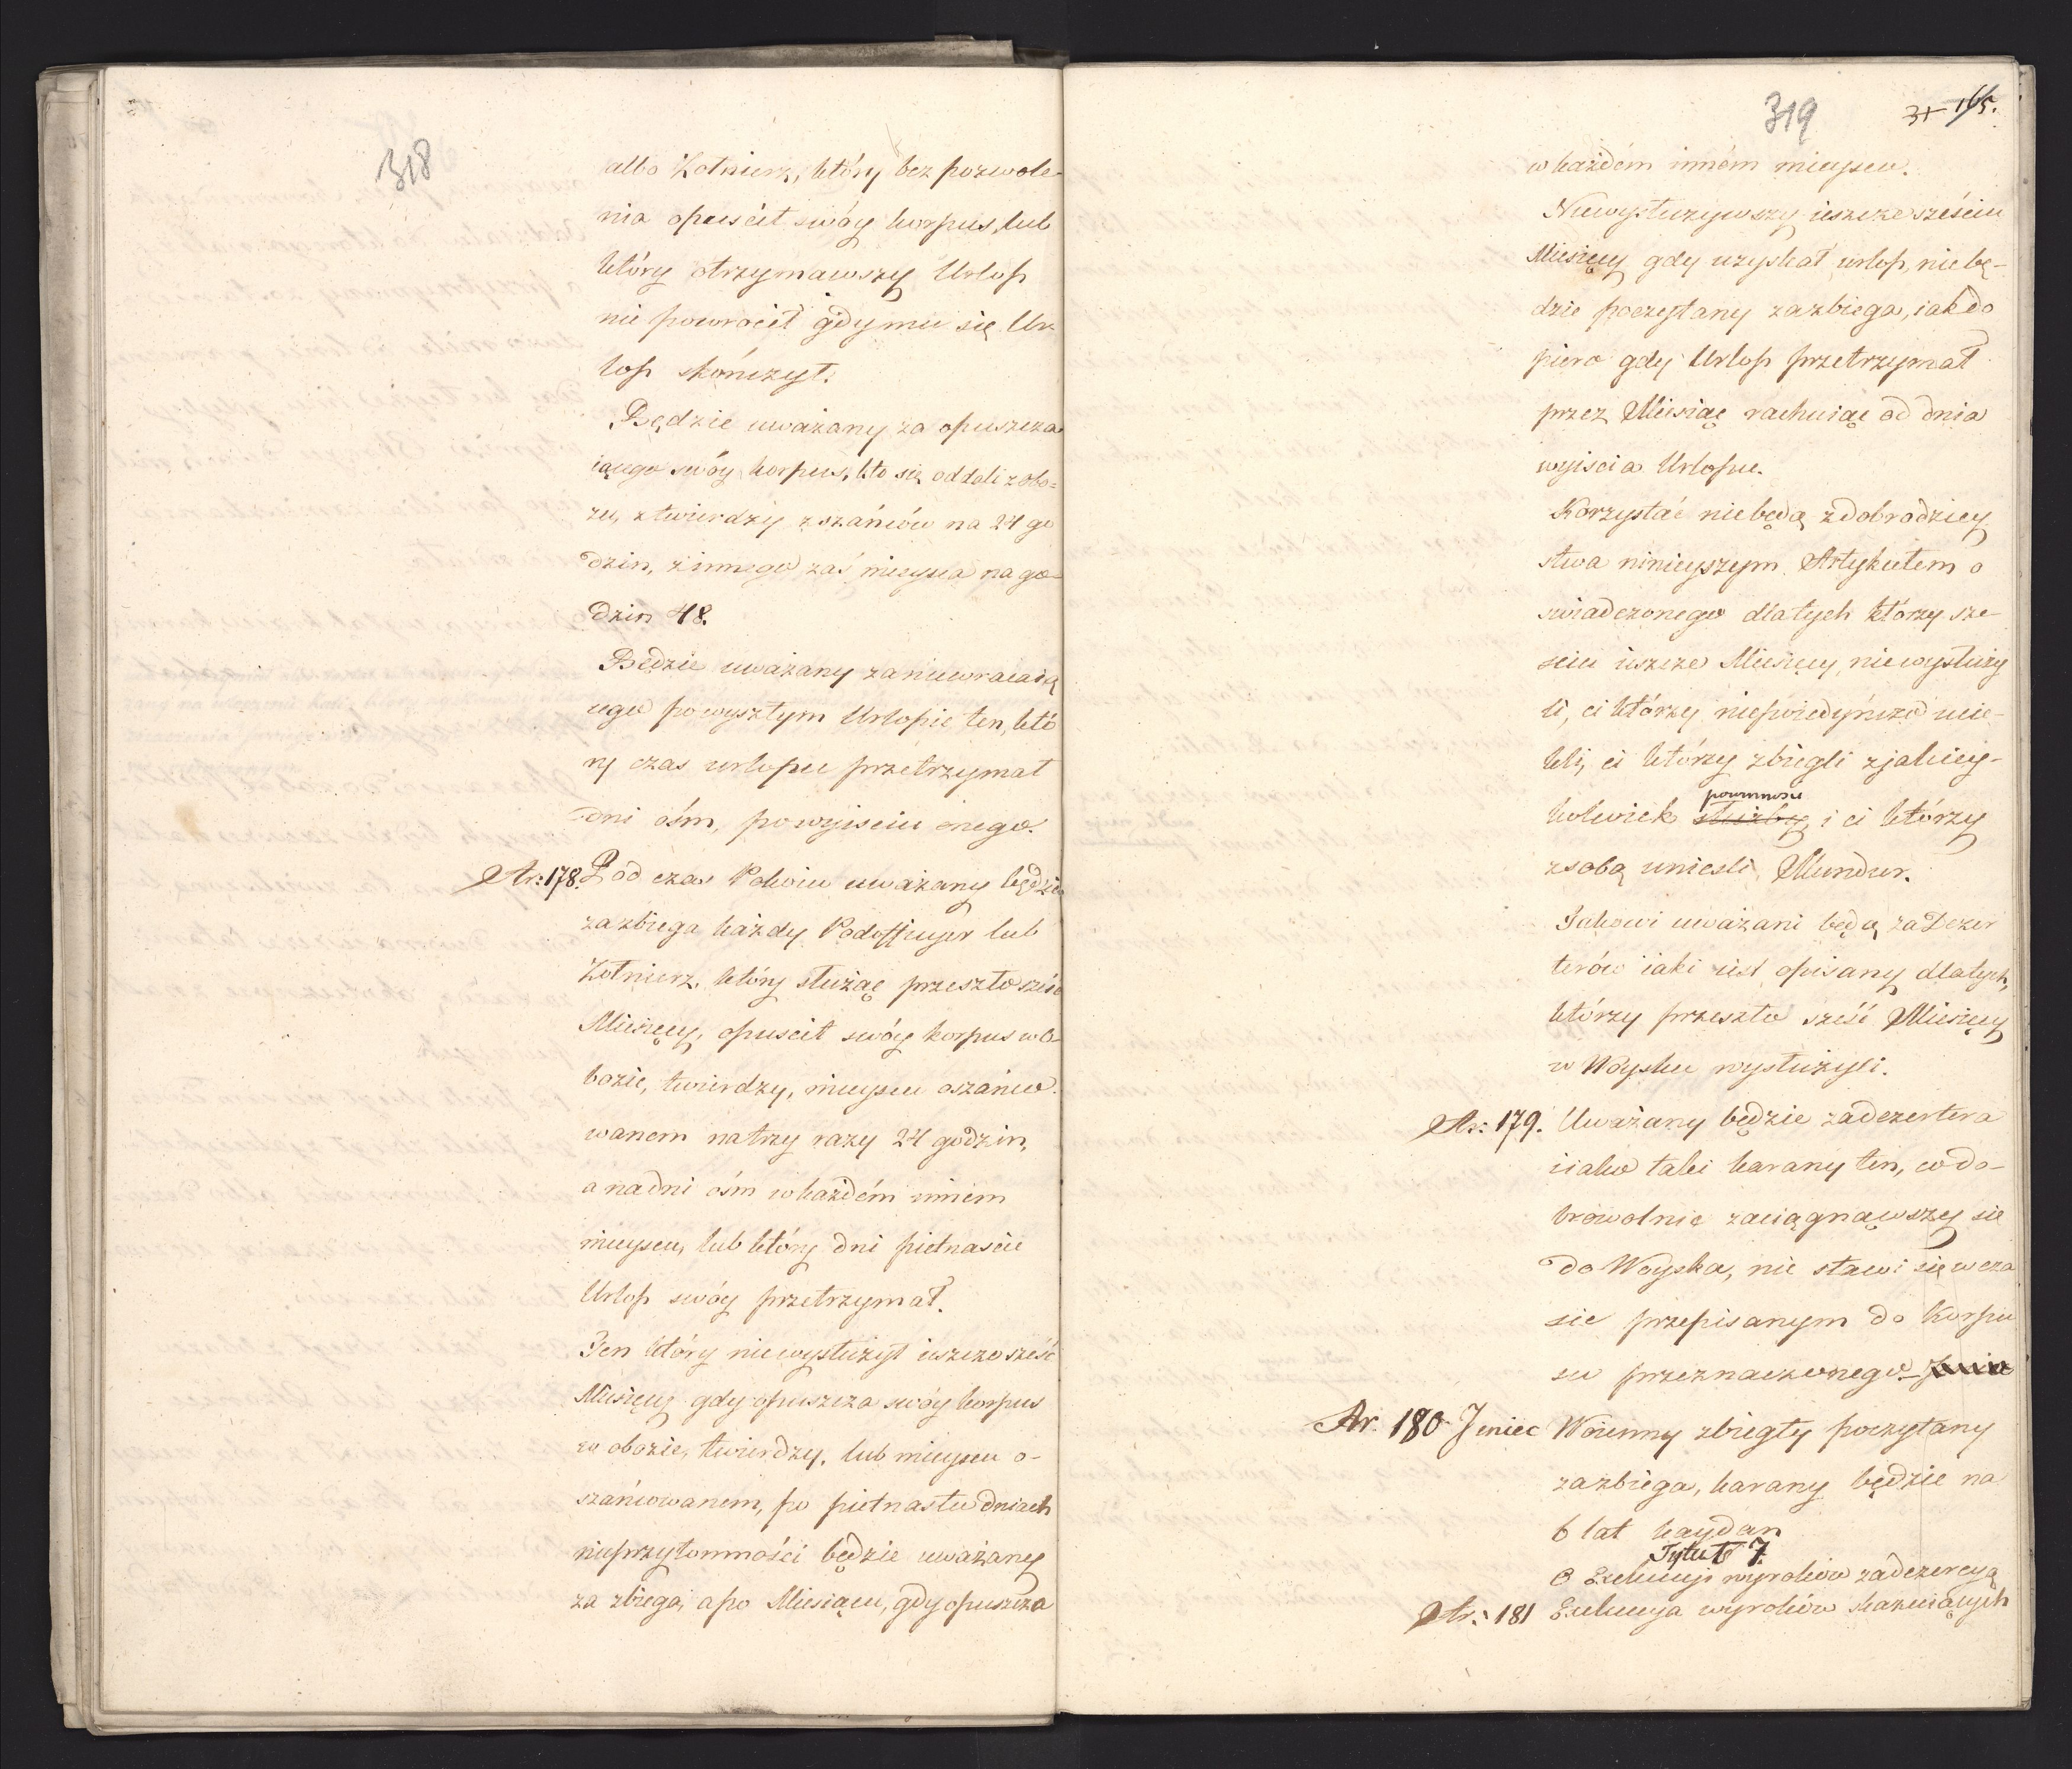 318
albo Zołnierz, który bez pozwole-
nia opuscił swóy korpus, lub
który otrzymawszy Urlop
nie powrócił gdy mu się Ur
lop skończył.
Będzie uważany za opuszcza
iącego swóy korpus, kto się oddali z obo-
zu, z twierdzy z szańców na 24 go
dzin, z innego zaś mieysca na go-
dzin 48.
Będzie uważany za niewracaią
cego po wyszłym Urlopie ten, któ
ry czas urlopu przetrzymał
dni ośm, po wyisciu onego.
Ar: 178. Pod czas Pokoiu uważany będzie
za zbiega każdy Podofficyer lub
Zołnierz, który służąc przeszło sześć
Miesięcy, opuscił swóy korpus w o-
bozie, twierdzy, mieyscu oszańco-
wanem na trzy razy 24 godzin,
a na dni ośm w każdém innem
mieyscu, lub który dni pietnascie
Urlop swóy przetrzymał.
Ten który niewysłużył ieszcze sześć
Miesięcy gdy opuszcza swóy korpus
w obozie, twierdzy, lub mieyscu o-
szańcowanem, po pietnastu dniach
nieprzytomności będzie uważany
za zbiega, a po Miesiącu, gdy opuszcza
319 165.
w każdém inném mieyscu.
Niewysłużywszy ieszcze sześciu
Miesięcy gdy uzyskał urlop, nie bę-
dzie poczytany za zbiega, iak do
piero gdy Urlop przetrzymał
przez Miesiąc rachuiąc od dnia
wyiscia Urlopu.
Korzystać niebędą z dobrodziey
stwa ninieyszym Artykułem o
swiadczonego dla tych którzy sze-
sciu ieszcze Miesięcy niewysłuży
li, ci którzy niepoiedyńczo ucie-
kli, ci którzy zbiegli z jakiey-
kolwiek służby powinności i ci którzy
z sobą uniesli Mundur.
Takowi uważani będą za Dezer
terów iaki iest opisany dla tych,
którzy przeszło sześć Miesięcy
w Woysku wysłużyli.
Ar: 179. Uważany będzie za dezertera
i iako taki karany ten, co do-
browolnie zaciągnąwszy się
do Woyska, nie stawi się w cza
sie przepisanym do Korpu
su przeznaczonego
Ar. 180 Jeniec Woienny zbiegły poczytany
za zbiega, karany będzie na
6 lat kaydan
Tytuł 7.
O Exekucyi wyroków za dezercyą
Ar: 181 Exekucya wyroków skazuiących